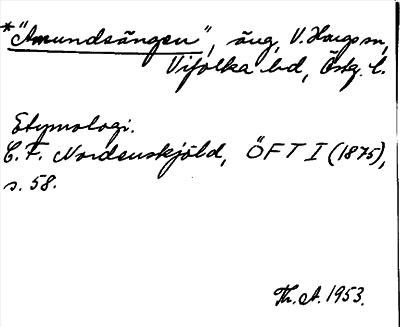 *"Amundsängen", äng, V. Harg sn,
Vifolka hd, Östg. l.
Etymologi.
C. F. Nordenskjöld, ÖFT I (1875),
s. 58.
Th. A. 1953.